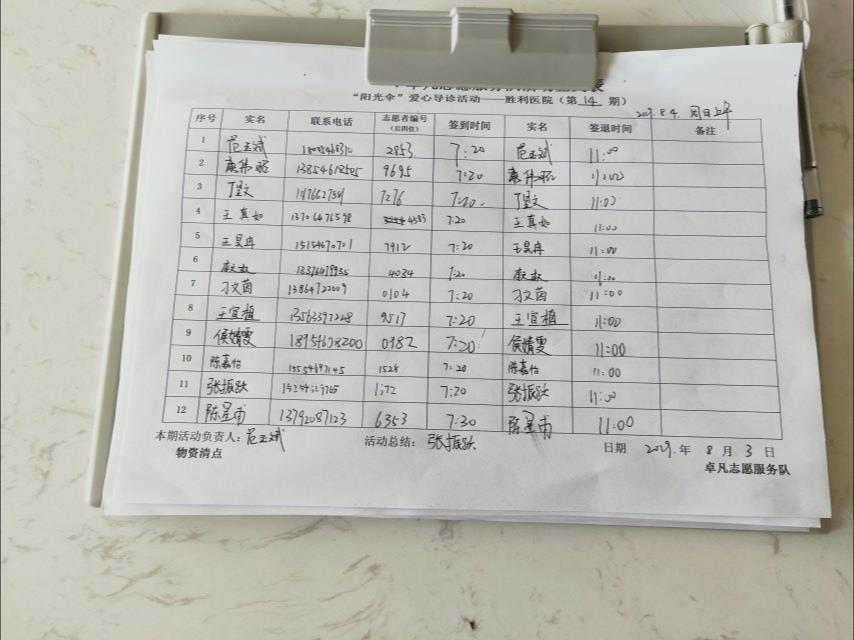 "阳光伞"爱心导诊活动——胜利医院（第 14 期）
8.4. 周日上午
序号 实名 联系电话 志愿者编号（后四位） 签到时间 实名 签退时间 备注
1 范玉斌 2853 7:20 范玉斌 11:00
2 康伟昭 13854618505 9695 7:20 康伟昭 11:00
3 7276 7:20 11:00
4 王真如 13706476598 4583 7:20 王真如 11:00
5 王昊冉 15154670701 7912 7:20 王昊冉 11:00
6 4034 7:20 11:00
7 刁文茵 13864722009 0104 7:20 刁文茵 11:00
8 王宣植 13563397228 9517 7:20 王宣植 11:00
9 侯婧雯 18954678200 0982 7:20 侯婧雯 11:00
10 陈嘉怡 1528 7:20 陈嘉怡 11:00
11 张振跃 7:20 张振跃 11:00
12 陈星甫 13792087123 6353 7:30 陈星甫 11:00
本期活动负责人：范玉斌 活动总结：张振跃 日期 年 8 月 3 日
物资清点 卓凡志愿服务队